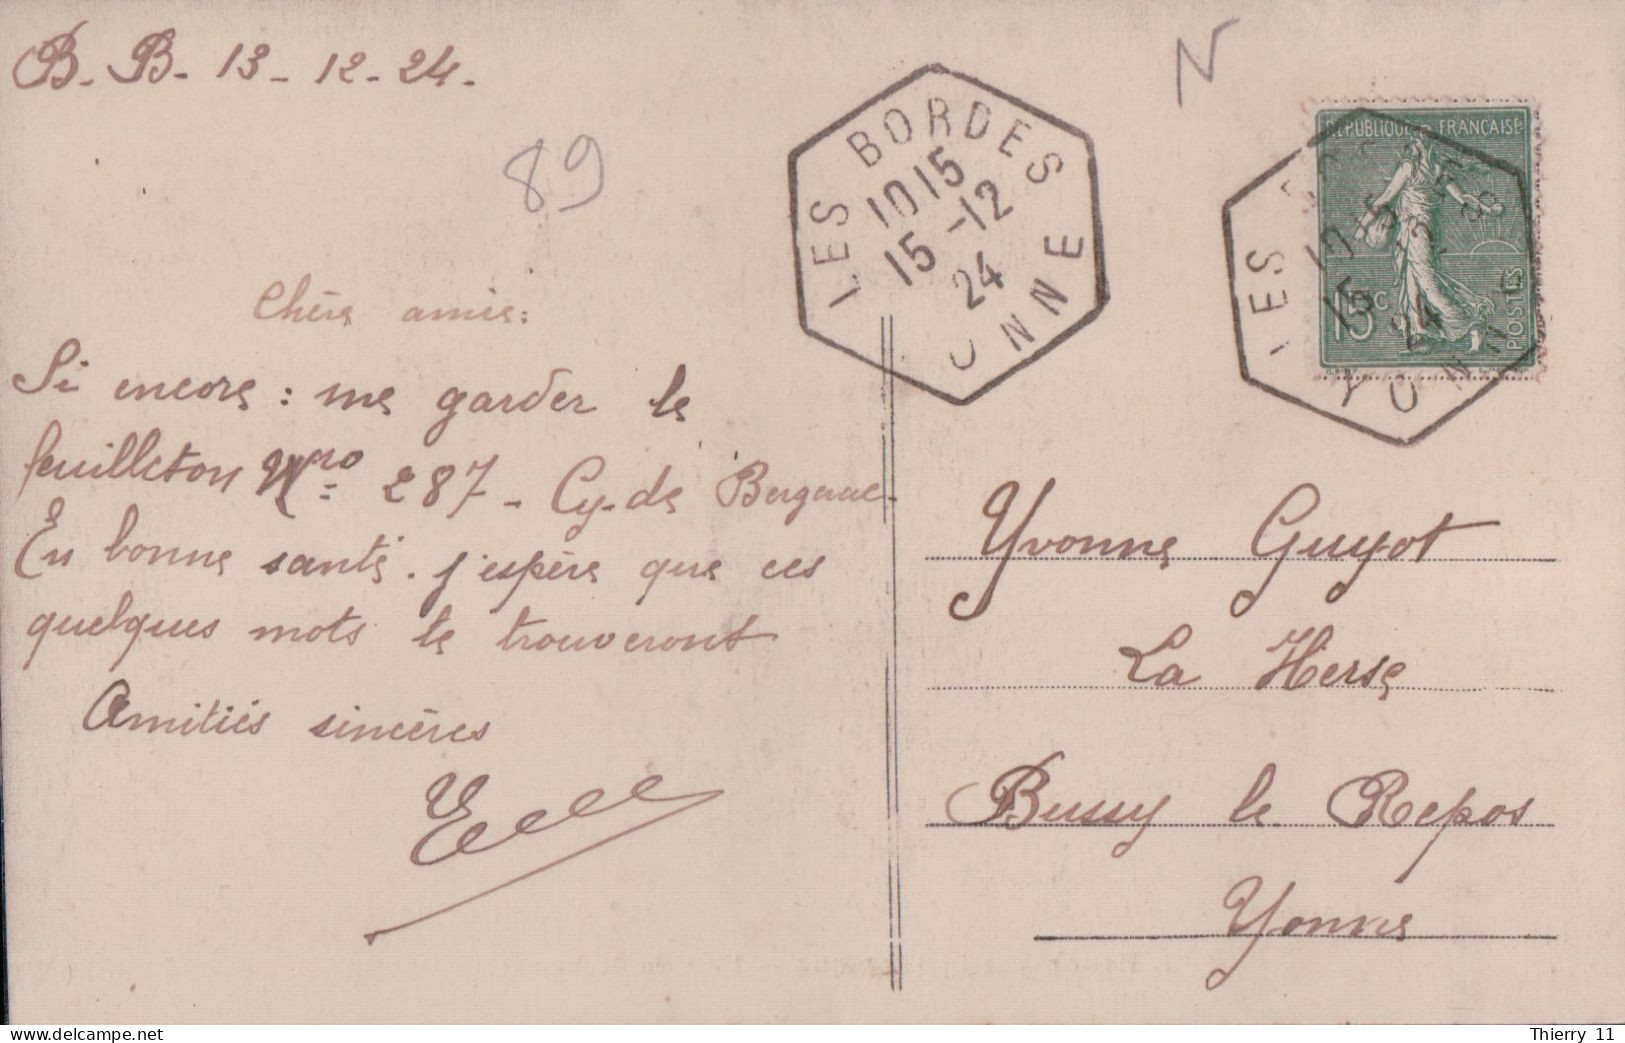 B. B. 13-12-24.
N
89
LES BORDES
10 15
15-12
24
YONNE
RÉPUBLIQUE FRANÇAISE
15c
POSTES
LES BORDES
10 15
15-12
24
YONNE
Chère amie:
Si encore : me garder le
feuilleton Nro 287 - Cy. de Bergerac.
En bonne santé. j'espère que ces
quelques mots te trouveront
Amitiés sincères
Yvonne Guyot
La Herse
Bussy le Repos
Yonne
Thierry 11